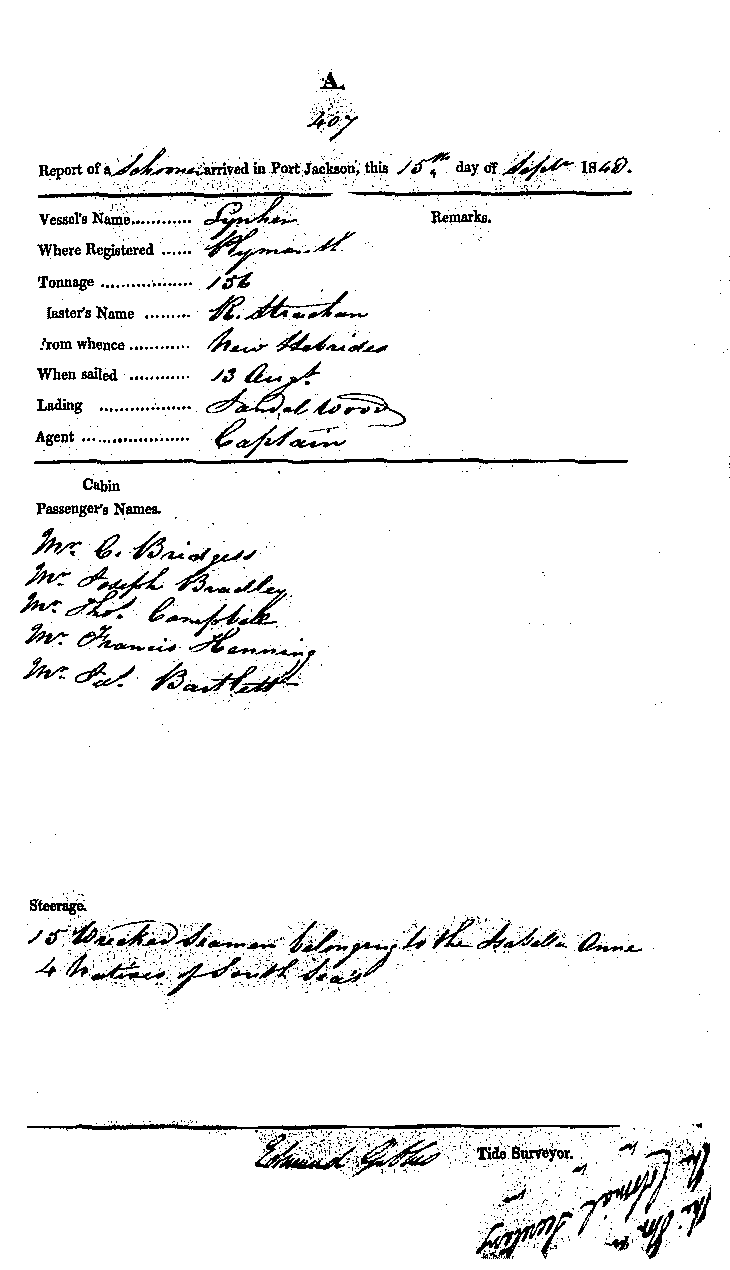 A.
407
Report of a Schooner arrived in Port Jackson, this 15th day of Septr 1848.
Vessel's Name............ Lynher
Remarks.
Where Registered ...... Plymouth
Tonnage .................. 156
Master's Name ......... R. Strachan
From whence ............ New Hebrides
When sailed ............ 13 Augt.
Lading .................. Sandal Wood
Agent ..................... Captain
Cabin
Passenger's Names.
Mr. C. Bridgess
Mr. Joseph Bradley
Mr. Thos. Campbell
Mr. Francis Henning
Mr. Bartlett
Steerage.
15 Wrecked Seamen belonging to the Isabella Anne
4 Natives of South Sea's
Edmund Gibbes Tide Surveyor.
The Hon
The Colonial Secretary